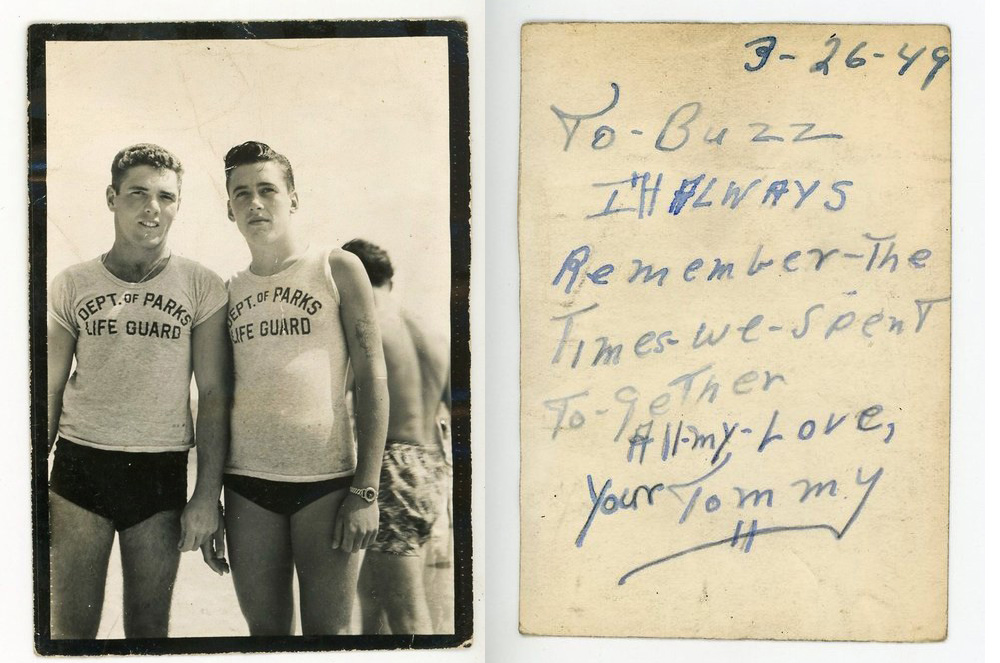 DEPT. OF PARKS
LIFE GUARD
DEPT. OF PARKS
LIFE GUARD
3-26-49
To-Buzz
I'll ALWAYS
Remember-The
Times-we-Spent
To-geTher
All-my-Love,
Your Tommy